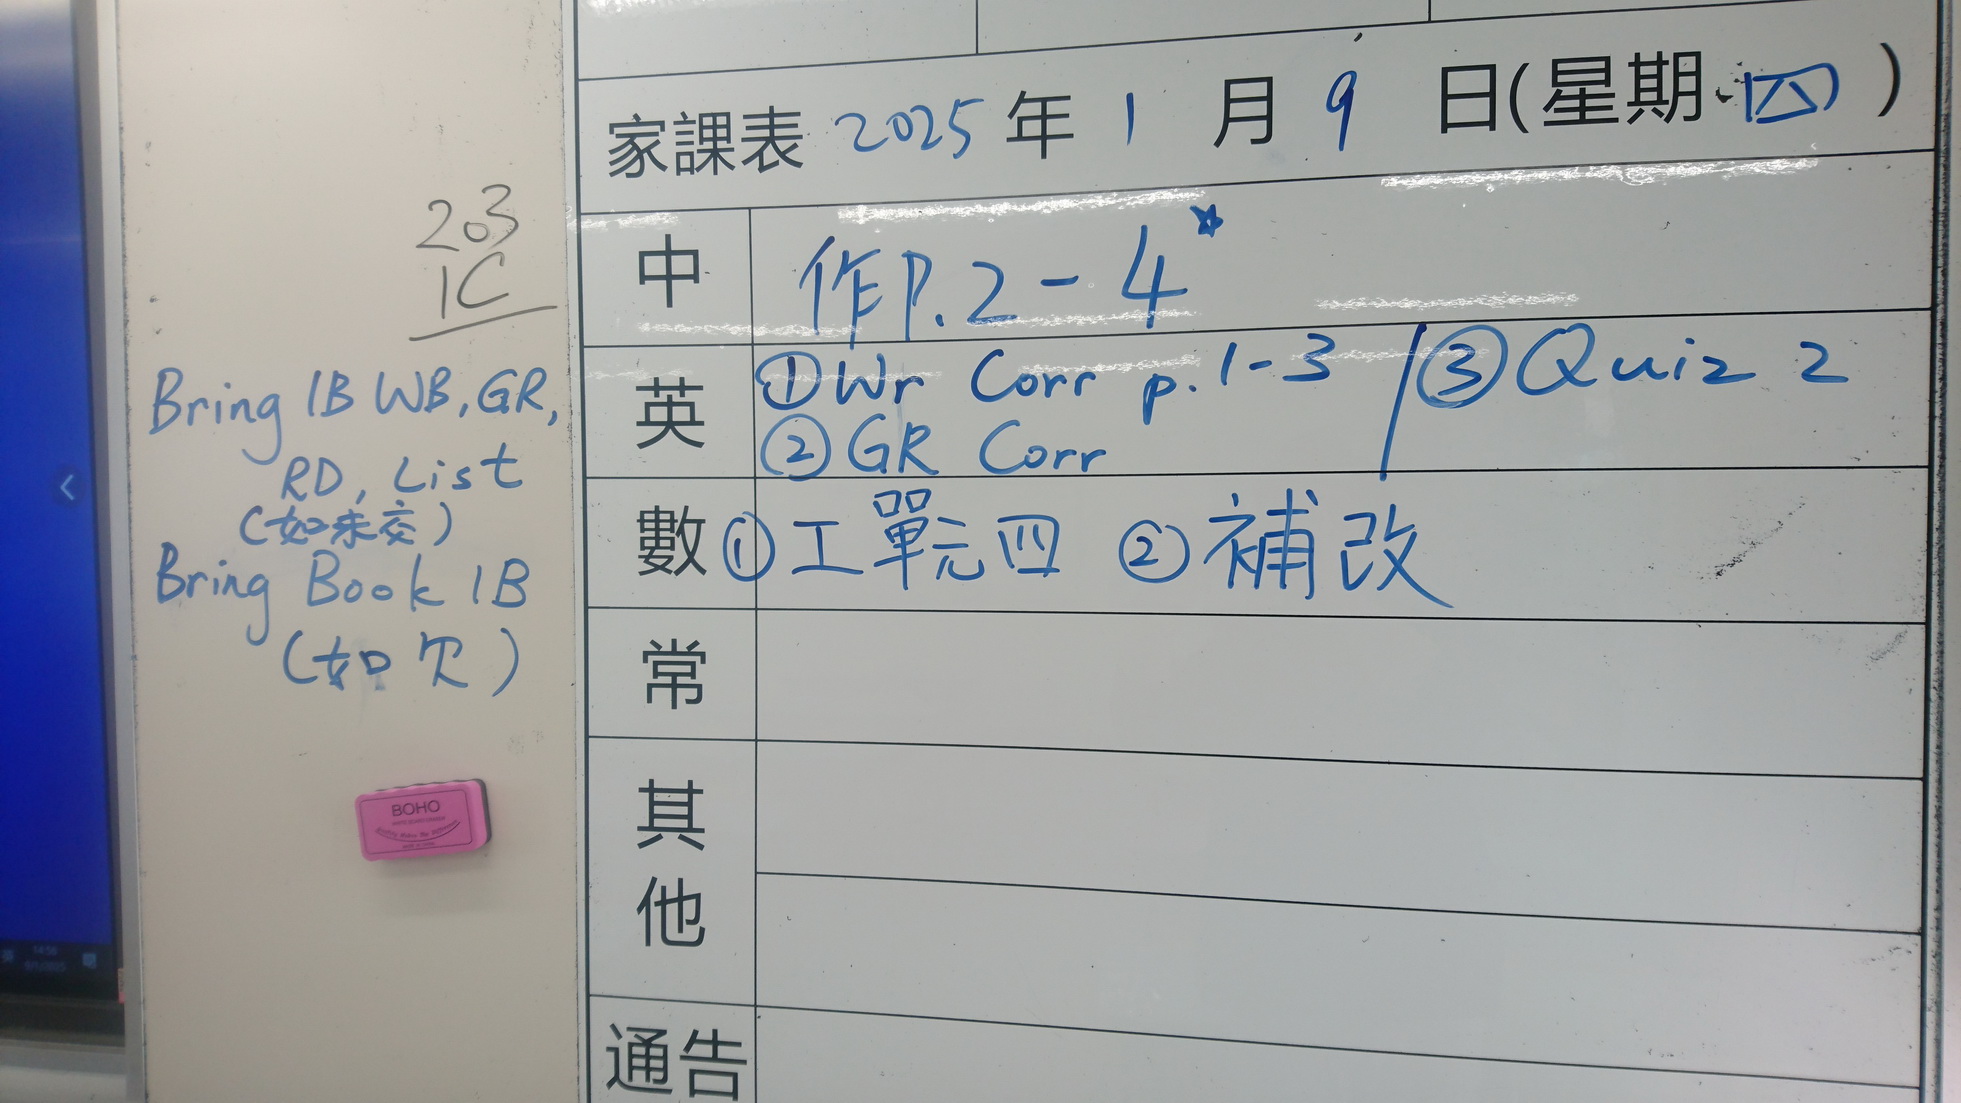 203
1C
Bring 1B WB, GR,
RD, List
(如未交)
Bring Book 1B
(如欠)
BOHO
家課表 2025 年 1 月 9 日(星期四)
中 作P.2-4*
英 ①Wr Corr p.1-3 / ③Quiz 2
②GR Corr
數 ①工單元四 ②補改
常
其他
通告